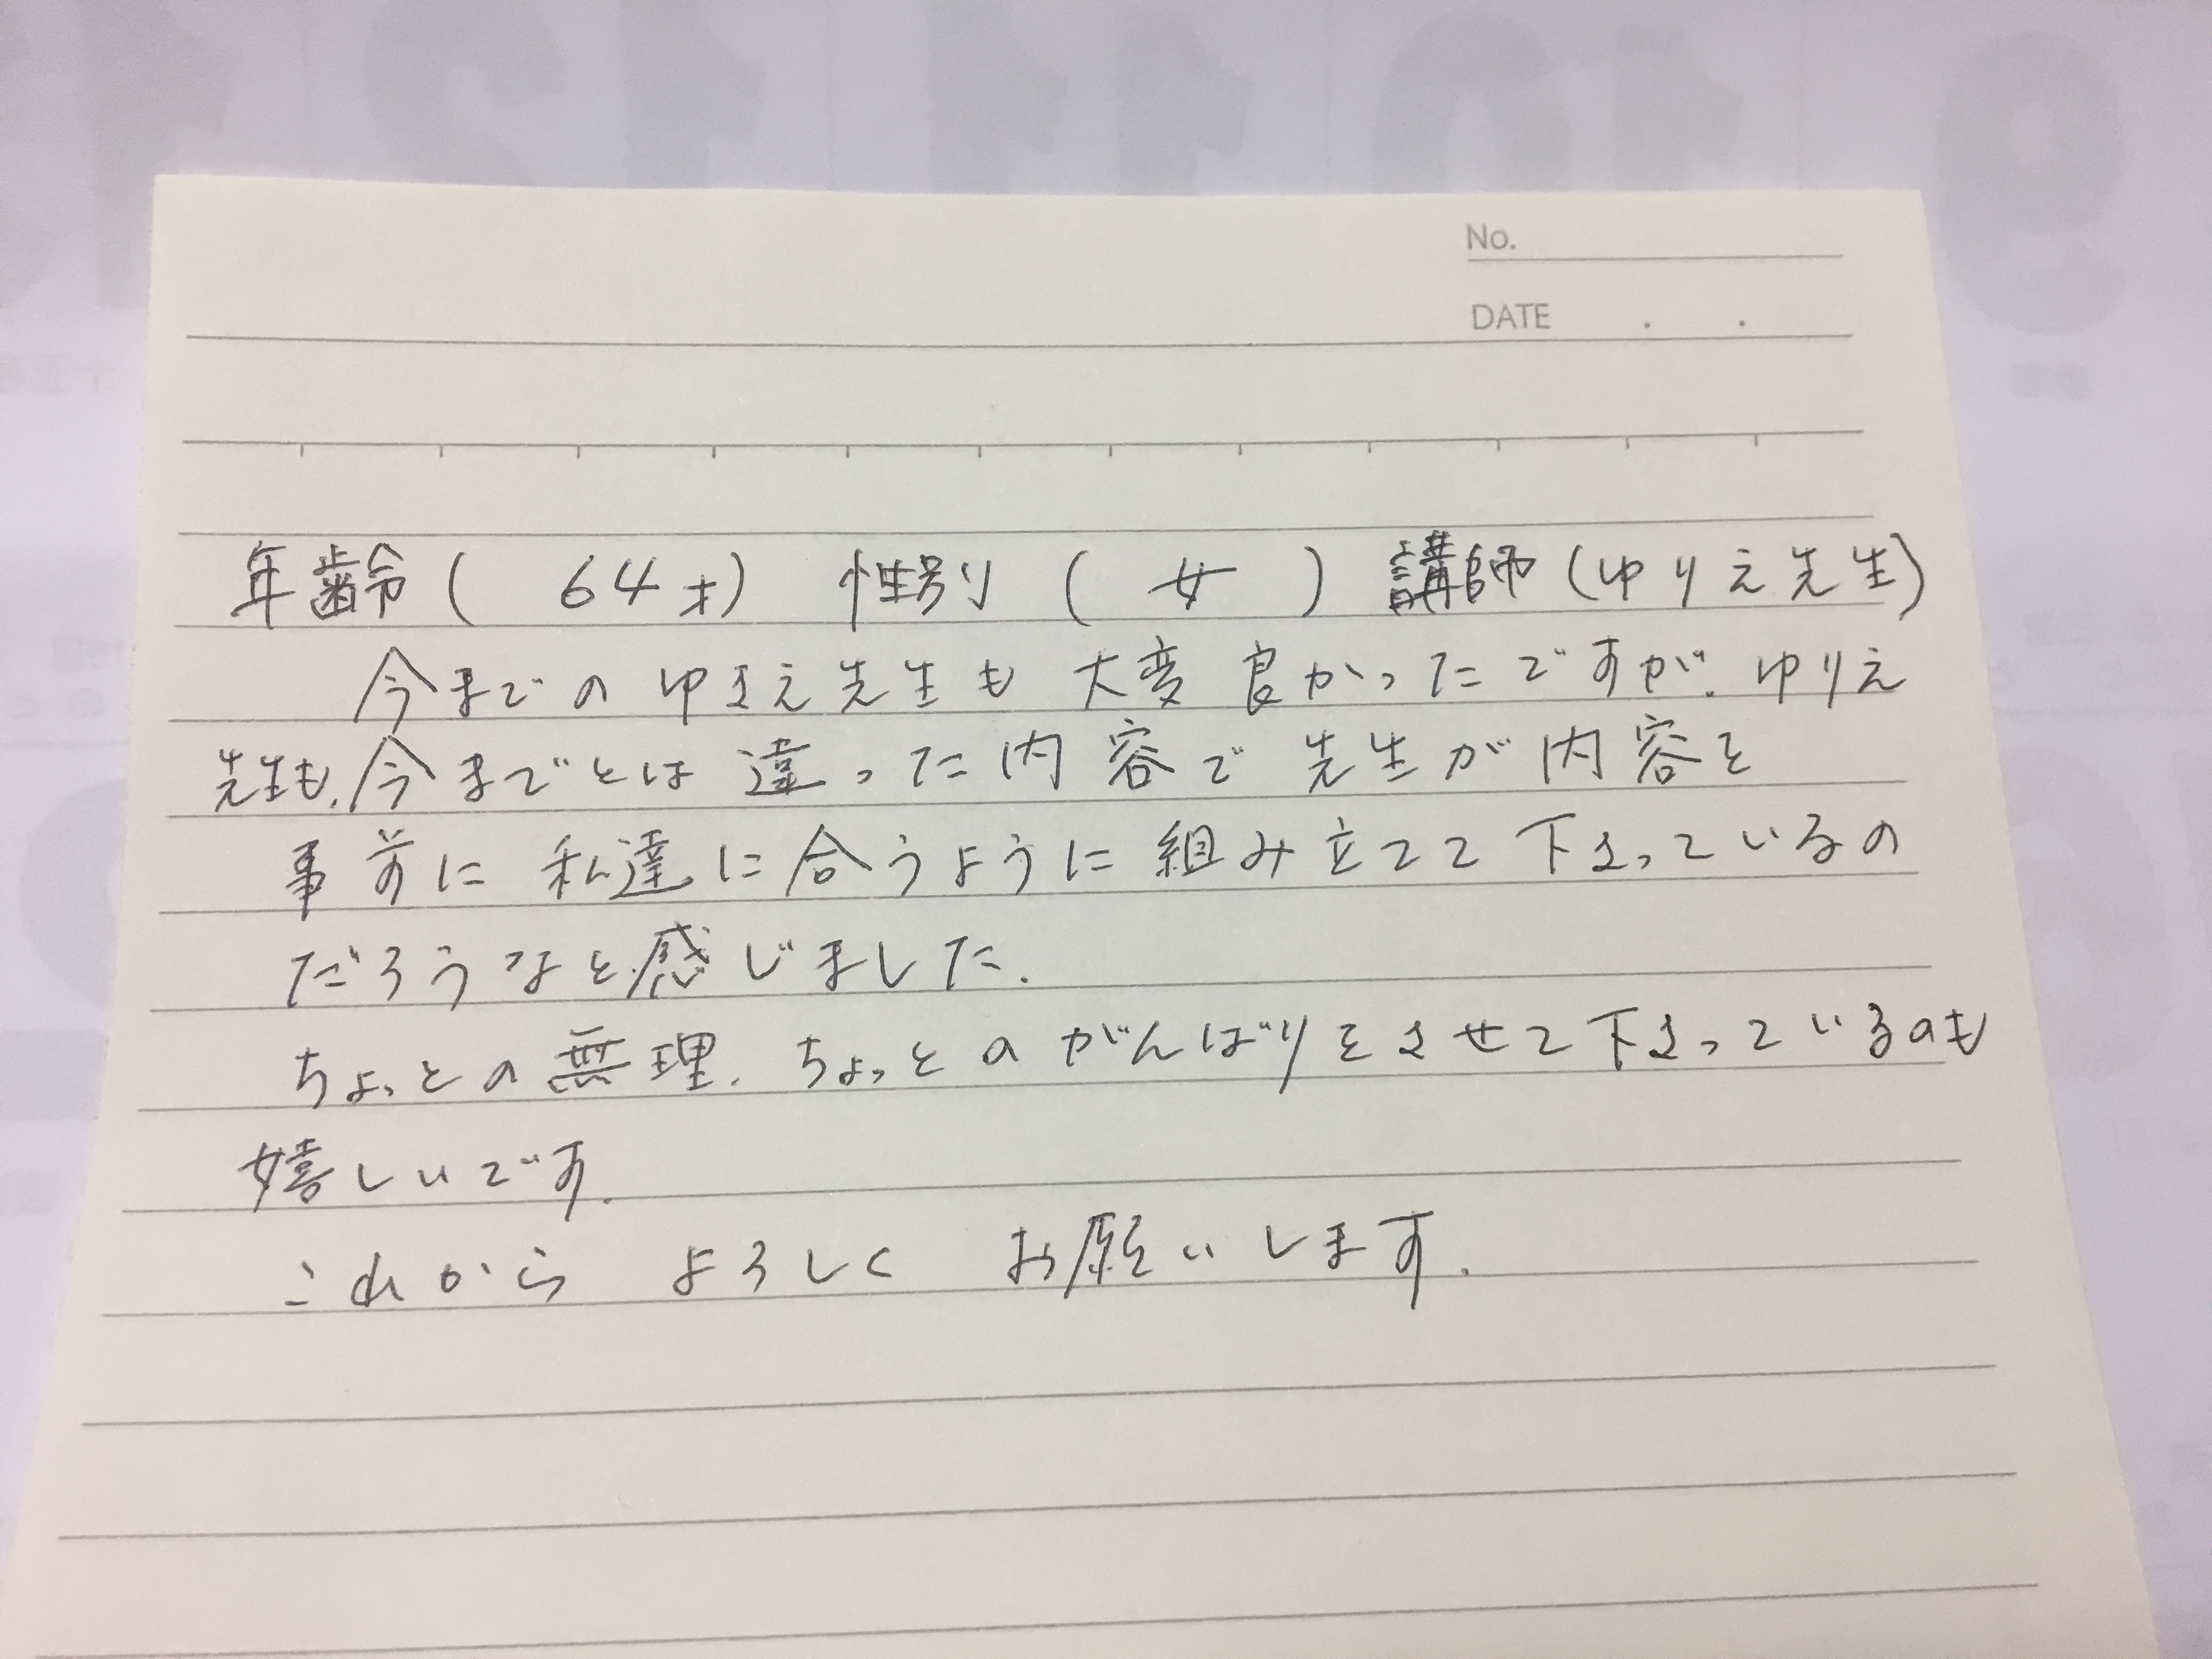 No.
DATE . .
年齢( 64才) 性別 ( 女 ) 講師(ゆりえ先生)
今までのゆきえ先生も大変良かったですが、ゆりえ
先生も、今までとは違った内容で先生が内容を
事前に私達に合うように組み立てて下さっているの
だろうなと感じました。
ちょっとの無理、ちょっとのがんばりをさせて下さっているのも
嬉しいです。
これから よろしく お願いします。